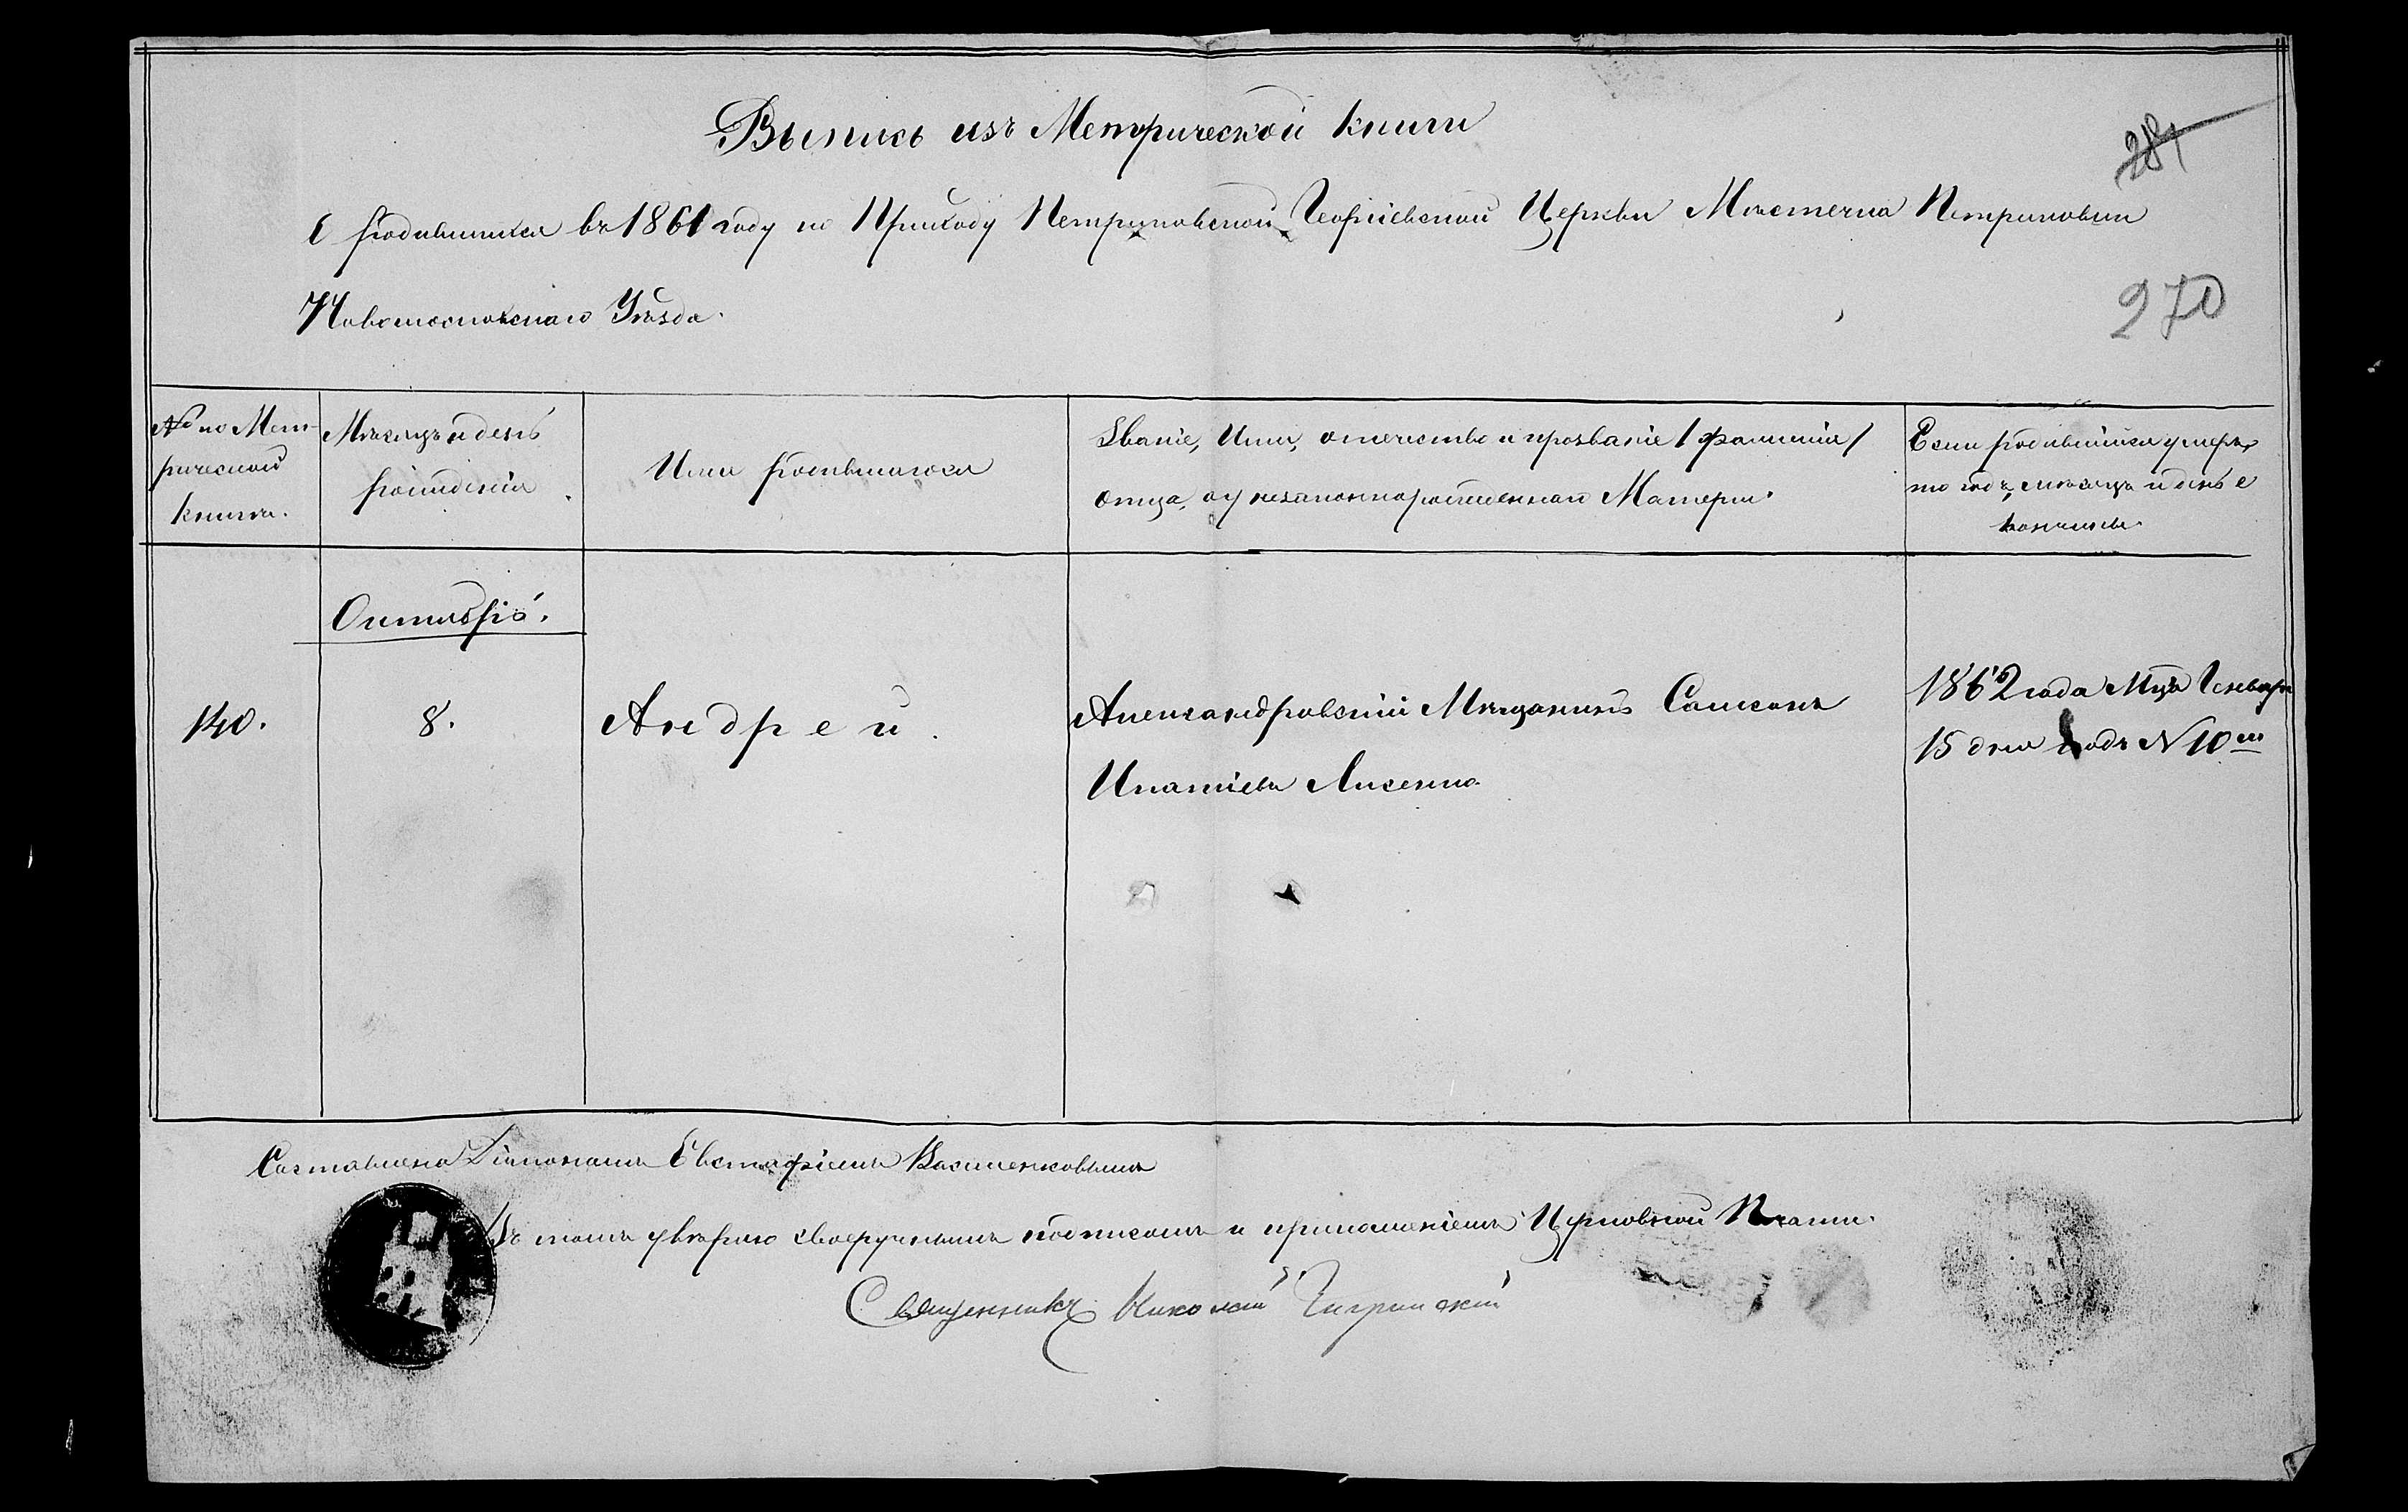 Выпись изъ Метрической книги
281
О родившихся въ 1861 году по Приходу Петриковской Георгіевской Церкви Мѣстечка Петриковки
Новомосковскаго Уѣзда.
270
№ по Мет-
рической
книгѣ.
Мѣсяцъ и день
рожденія.
Имя родившагося
Званіе, Имя, отечество и прозваніе /фамилія/
отца, а у незаконнорожденнаго Матери.
Если родившійся умеръ,
то годъ, мѣсяцъ и день е
кончины.
Октябрь.
140.
8.
Андрей.
Александровскій Мѣщанинъ Самсонъ
Ипатіевъ Лисенко
1862 года Мца Генваря
15 дня подъ № 10м
Составлена Діакономъ Евстафіемъ
Въ томъ увѣряю своеручнымъ подписомъ и приложеніемъ Церковной Печати.
Священникъ Николай